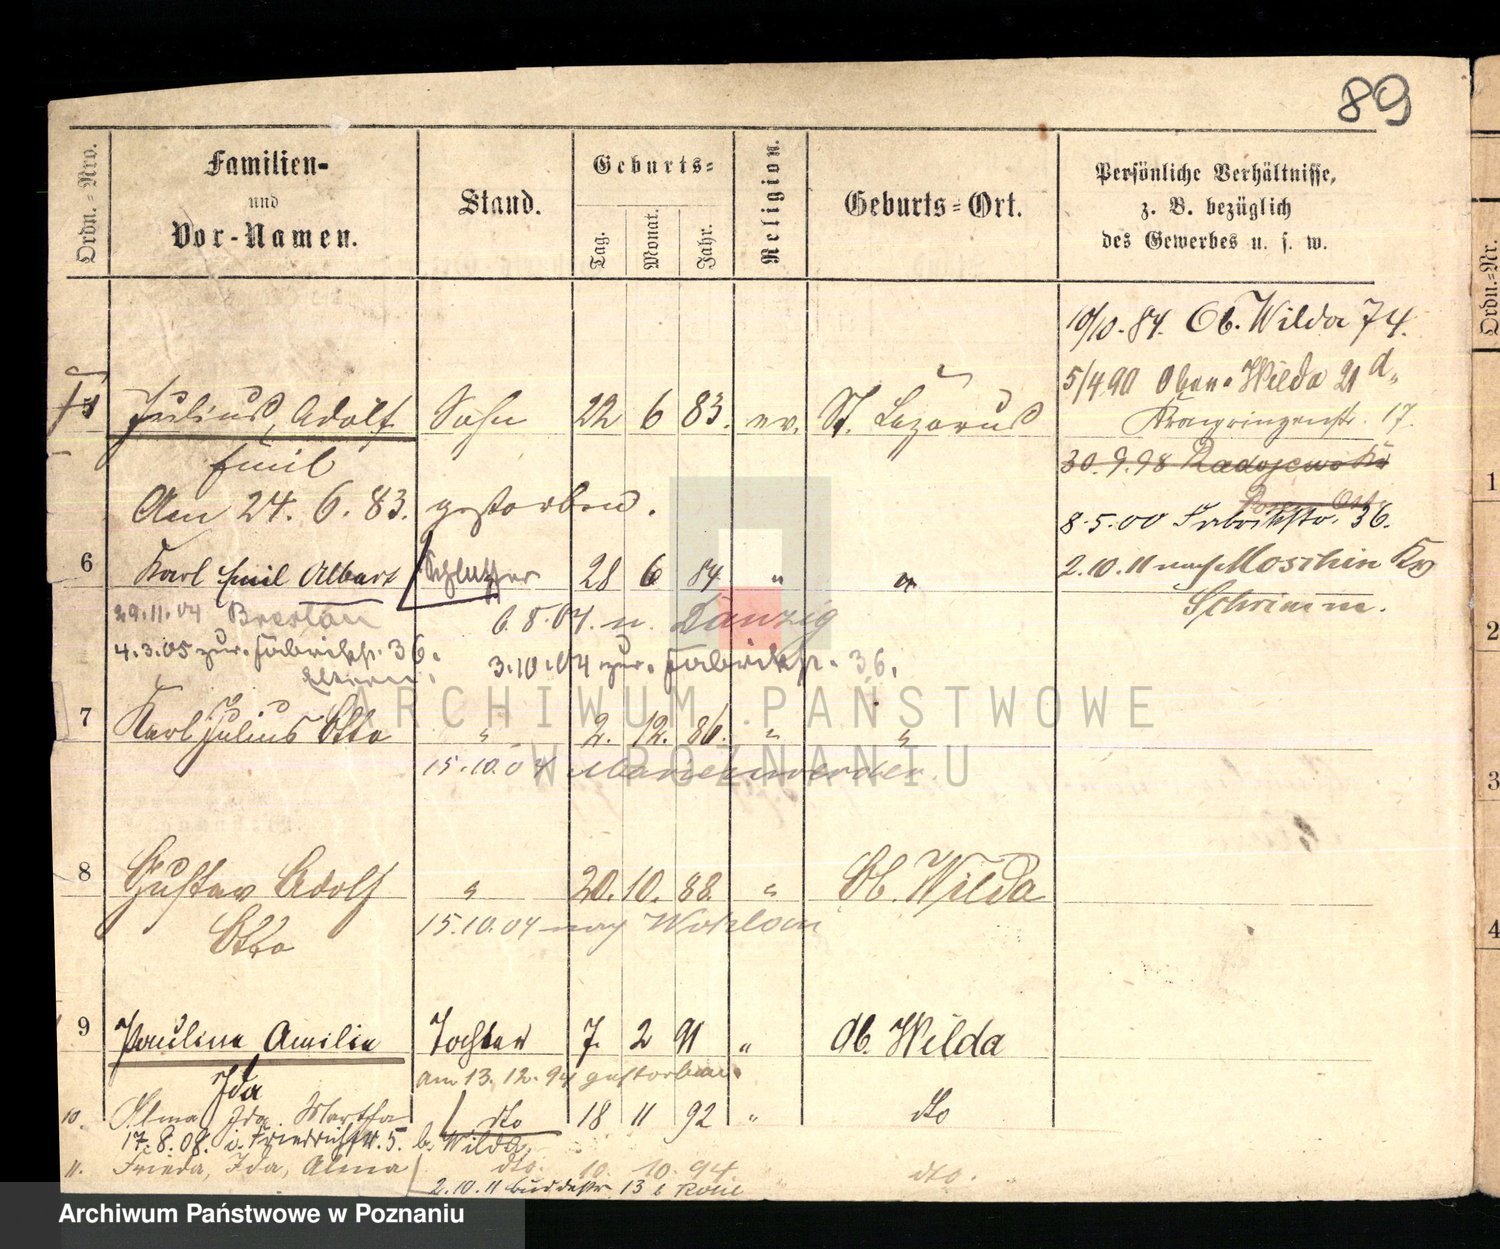 89
Ordn.=Nro.
Familien-
und
Vor-Namen.
Stand.
Geburts=
Tag.
Monat.
Jahr.
Religion.
Geburts=Ort.
Persönliche Verhältnisse,
z. B. bezüglich
des Gewerbes u. s. w.
10/10. 84. Ob. Wilda 74.
5/4 90 Ober-Wilda 21 d.
Kronprinzenstr. 17.
5 Julius, Adolf Sohn 22 6 83. ev. St. Lazarus
Emil 30. 9. 98 Radojewo
Am 24. 6. 83. gestorben.
8. 5. 00 Fabrikstr. 36.
6 Karl Emil Albert Schlosser 28 6 84 " "
2. 10. 11 nach Moschin Kr
Schrimm.
29. 11. 04 Breslau 6. 8. 04. n. Danzig
4. 3. 05 zur. Fabrikstr. 36. 3. 10. 04 zur. Fabrikstr. 36.
Eltern.
7 Karl Julius Otto " 2. 12. 86. " "
15. 10. 04 Marienwerder.
8 Gustav Adolf " 20. 10. 88. " Ob. Wilda
Otto 15. 10. 04 nach Wohlau
9 Pauline Amilie Tochter 7. 2 91 " Ob. Wilda
Ida am 13. 12. 94 gestorben.
10. Alma Ida Martha dto 18 11 92 " dto
17. 8. 08. Friedrichstr. 5. b. Wilda
11. Frieda, Ida, Alma dto. 10. 10. 94 dto.
2. 10. 11 Buddestr 13
Ordn.=Nr.
1
2
3
4
ARCHIWUM PAŃSTWOWE
W POZNANIU
Archiwum Państwowe w Poznaniu